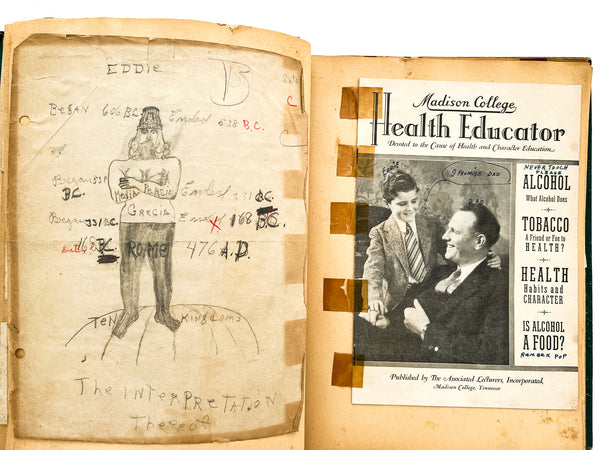 EDDie
B
Began 606 BC. Ended 538 B.C.
C
Began 538
BC.
MEDIA PERSIA
Ended 331 BC.
GRECIA
Began 331 BC. Ended 168 BC.
168 BC ROME 476 A.D.
TeN KingDoms
The INterpreTATION
Thereof
Madison College
Health Educator
Devoted to the Cause of Health and Character Education
Eddie
I PROMISE DAD
DAD
NEVER TOUCH
PLEASE
ALCOHOL
What Alcohol Does
TOBACCO
A Friend or Foe to
HEALTH?
HEALTH
Habits and
CHARACTER
IS ALCOHOL
A FOOD?
REMBER POP
Published by The Associated Lecturers, Incorporated,
Madison College, Tennessee